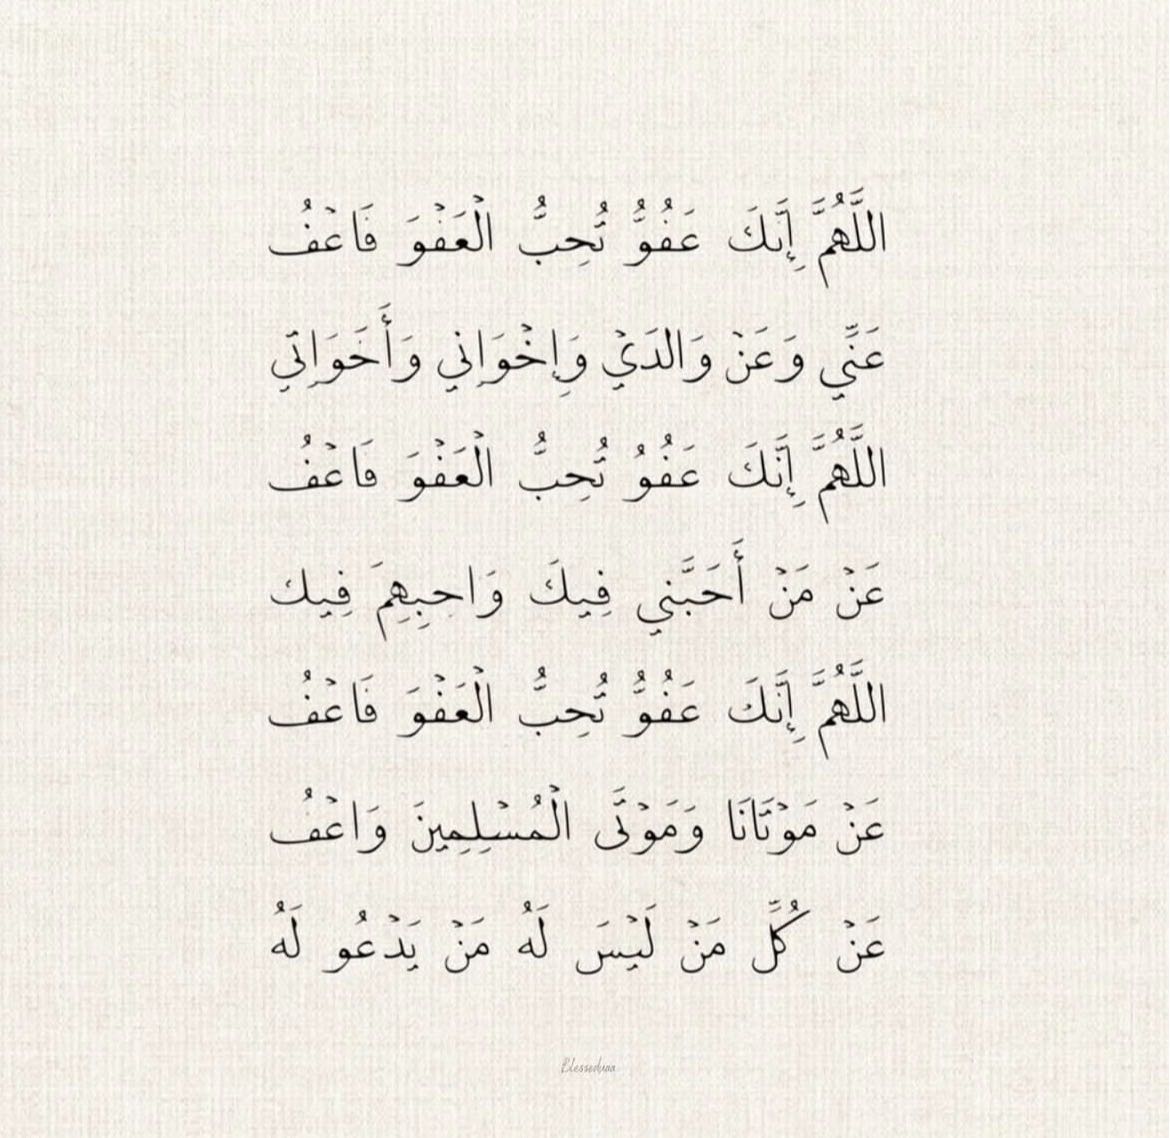 اللَّهُمَّ إِنَّكَ عَفُوٌّ تُحِبُّ الْعَفْوَ فَاعْفُ
عَنِّي وَعَنْ وَالدَيْ وَإِخْوَانِي وَأَخَوَاتِي
اللَّهُمَّ إِنَّكَ عَفُوُ تُحِبُّ الْعَفْوَ فَاعْفُ
عَنْ مَنْ أَحَبَّنِي فِيكَ وَاحِبِهِمَ فِيك
اللَّهُمَّ إِنَّكَ عَفُوٌّ تُحِبُّ الْعَفْوَ فَاعْفُ
عَنْ مَوْتَانَا وَمَوْتَى الْمُسْلِمِينَ وَاعْفُ
عَنْ كُلِّ مَنْ لَيْسَ لَهُ مَنْ يَدْعُو لَهُ